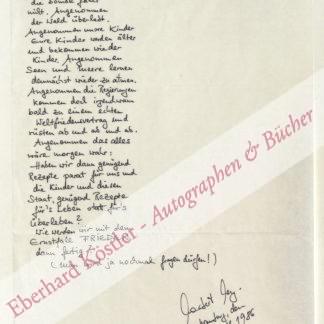 die Bombe fällt
nicht. Angenommen
der Wald überlebt.
Angenommen unsre Kinder
Eure Kinder werden älter
und bekommen wieder
Kinder. Angenommen
Seen und Meere lernen
demnächst wieder zu atmen.
Angenommen die Regierungen
kommen doch irgendwann
bald zu einem echten
Weltfriedensvertrag und
rüsten ab und ab und ab.
Angenommen das alles
wäre morgen wahr:
Haben wir dann genügend
Rezepte parat für uns und
die Kinder und diesen
Staat, genügend Rezepte
für's Leben statt für's
Überleben?
Wie werden wir mit dem
Ernstfalle FRIEDEN
dann fertig?
(man wird ja nochmal fragen dürfen!)
den
1986
Eberhard Köstler - Autographen & Bücher